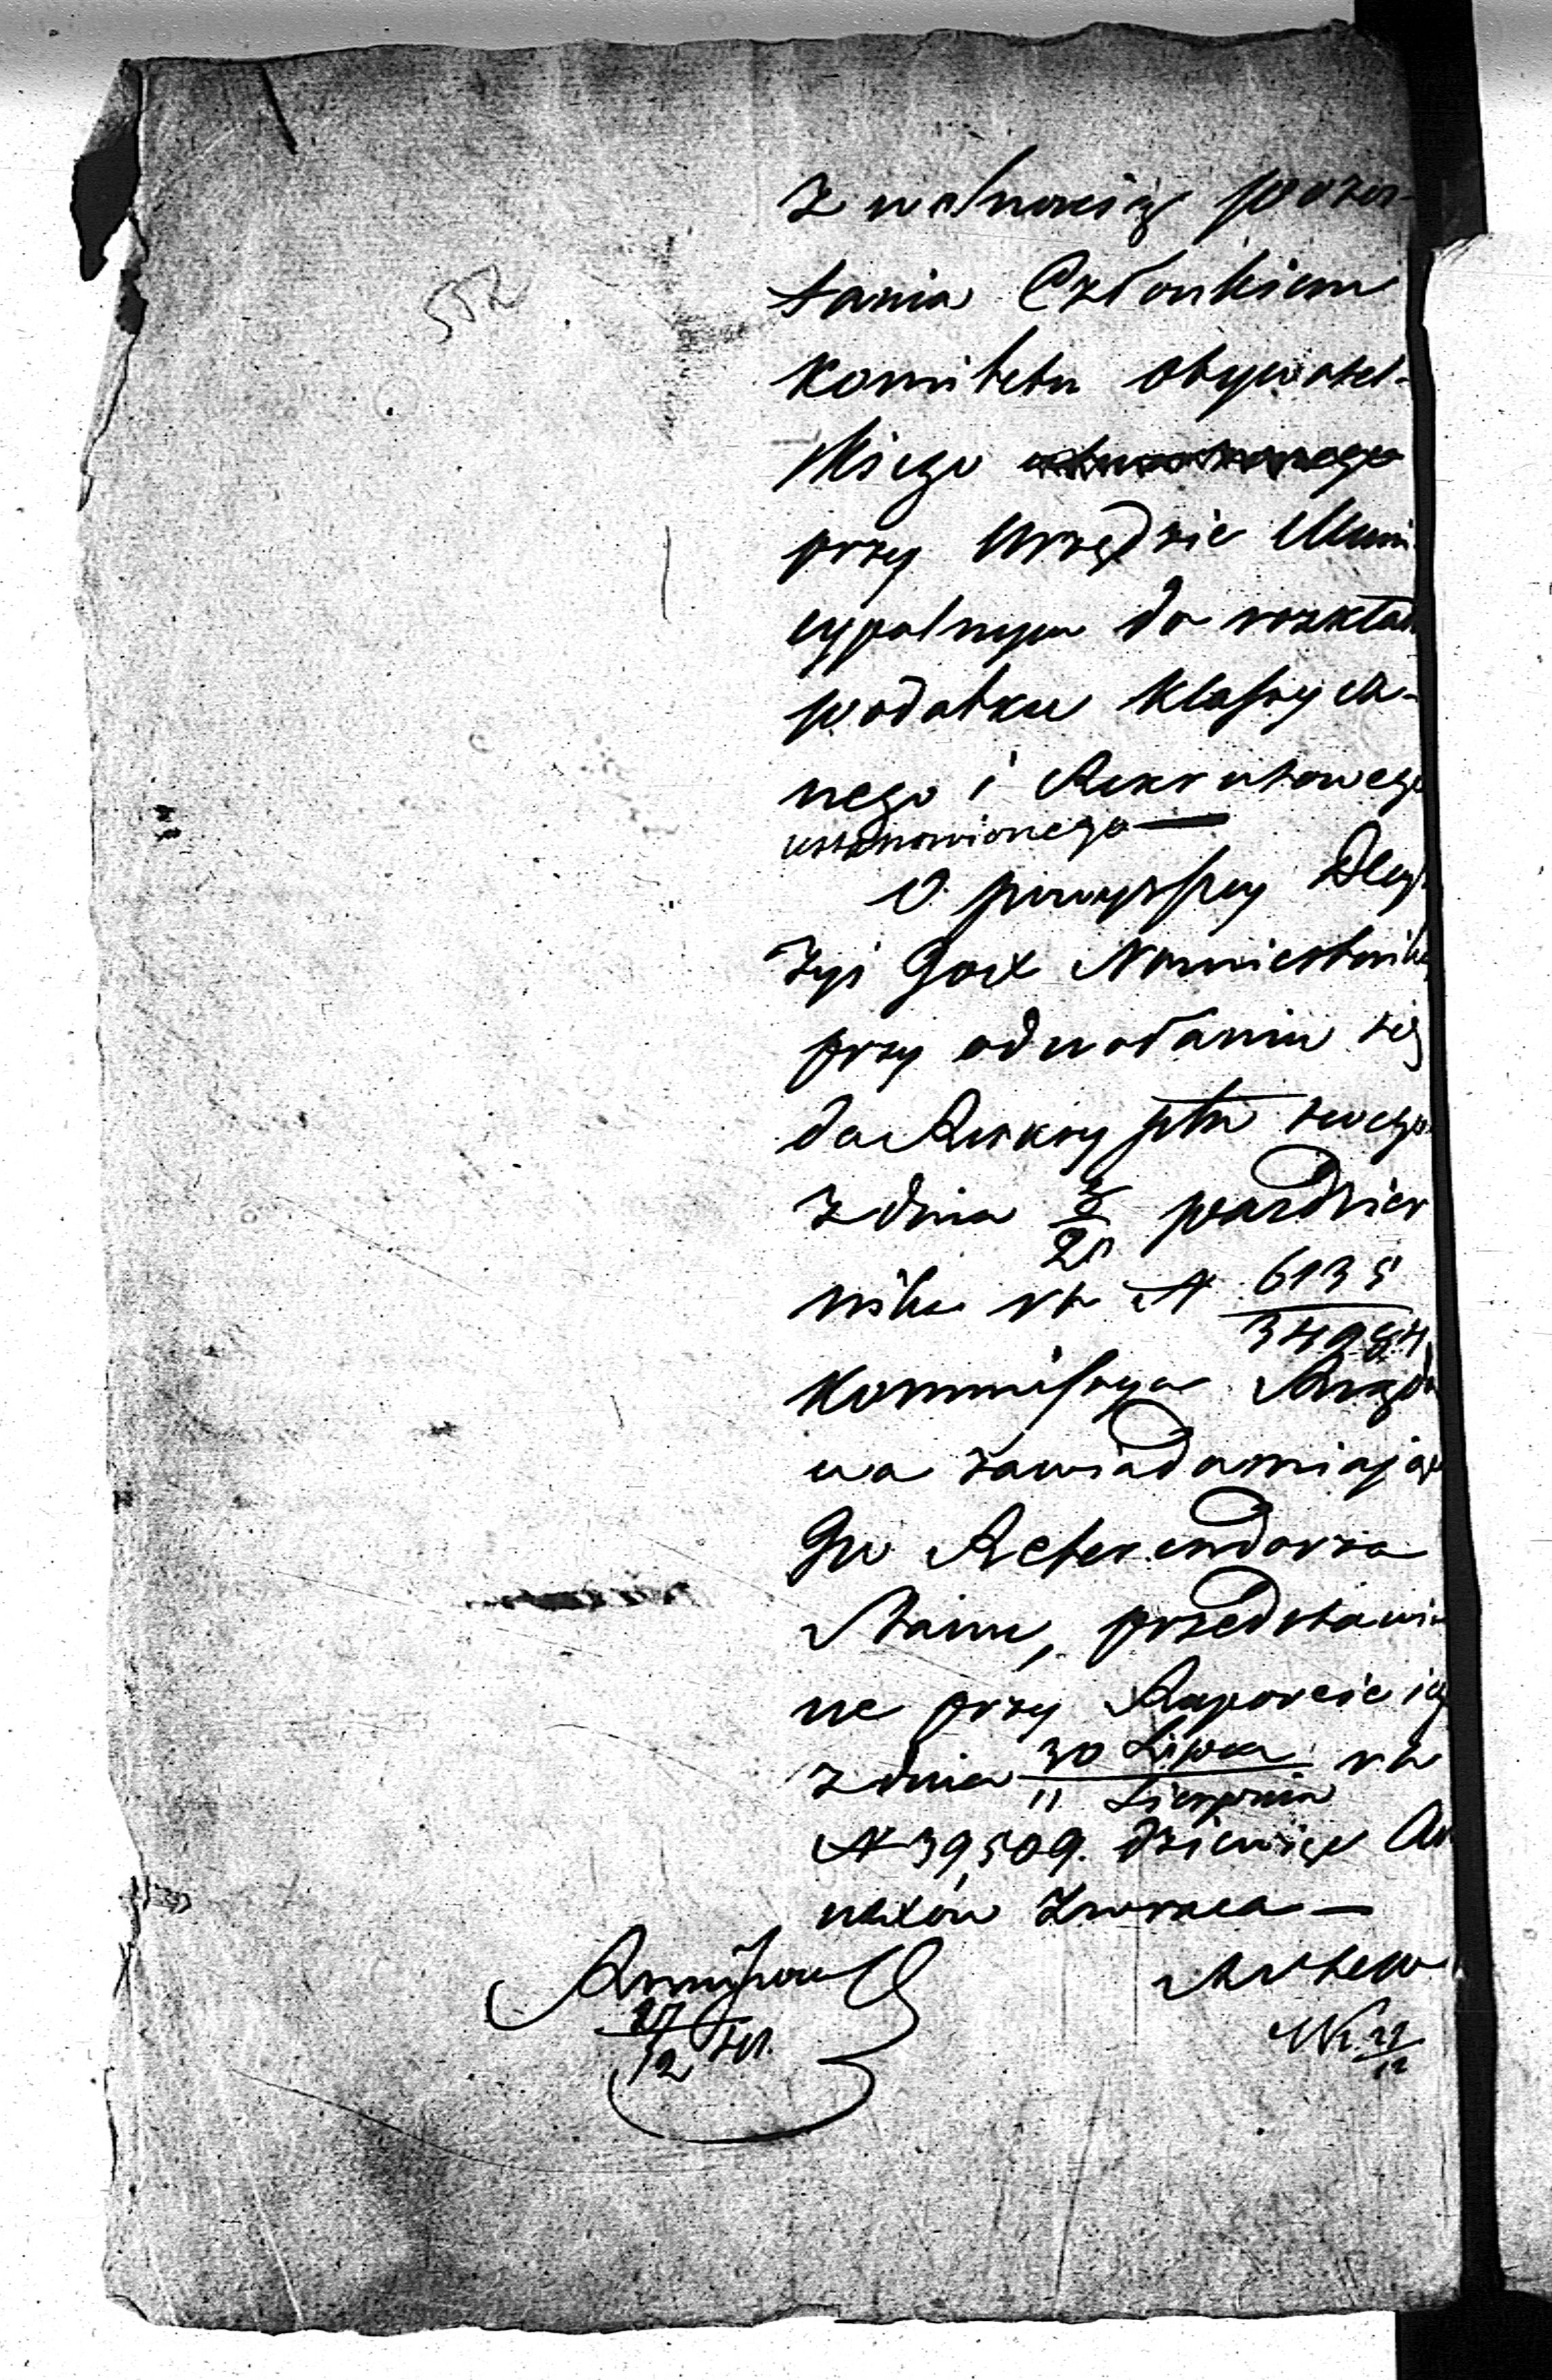 552
z wolnością pozos-
tania Członkiem
Komitetu obywatel-
skiego
przy Urzędzie Muni
cypalnym do rozkład
podatku klassycz-
nego i Rekrutowego
ustanowionego —
O powyższey Decy
zyi JOX Namiestnika
przy odwołaniu się
do Reskryptu swego
z dnia 8/20 pazdzier
nika rb N 6135/34984
Kommissya Rządo
wa zawiadamiając
JW Referendarza
Stanu, przedstawio
ne przy Raporcie ią
z dnia 30 Lipca/11 Sierpnia rb
N 39,509. dziewięć An
nexów zwraca —
27/12